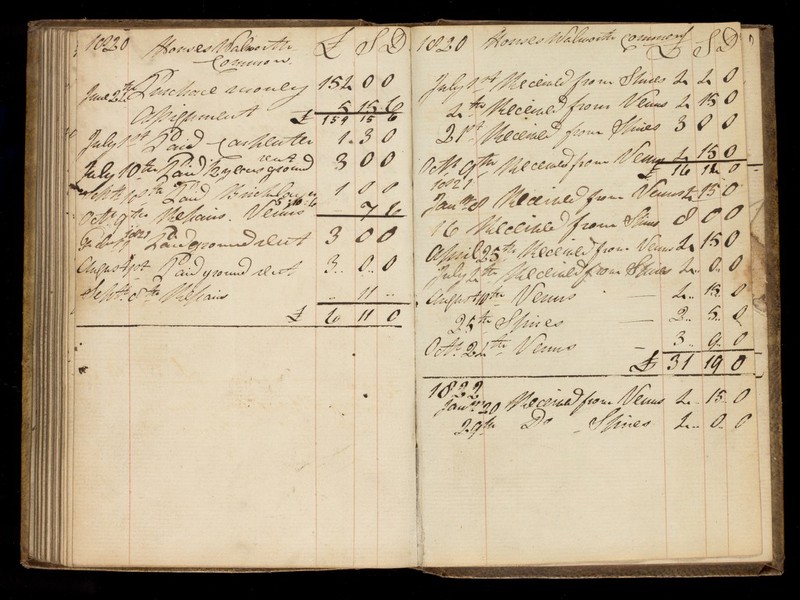 1820 Houses Walworth £ S D
Common
June 24th Purchase money 154 0 0
Assignment 5 15 6
£ 159 15 6
July 1st Paid Carpenter 1 3 0
July 10th Paid ground rent 3 0 0
Paid Bricklayer 1 0 0
Octr 9th Repairs Venus 7 6
Paid ground rent 3 0 0
August 10th Paid ground rent 3 0 0
Septr 8th Repairs 11
£ 6 11 0
1820 Houses Walworth Common £ S D
July 1st Received from Spires 4 4 0
4th Received from Venus 4 15 0
21st Received from Spires 3 0 0
Octr 9th Received from Venus 4 15 0
£ 16 14 0
1821
Janry 8 Received from Venus 4 15 0
16 Received from Spires 8 0 0
April 25th Received from Venus 4 15 0
July 4th Received from Spires 4 0 0
August 10th Venus 4 15 0
25th Spires 2 5 0
Octr 24th Venus 3 9 0
£ 31 19 0
1822
Janry 20 Received from Venus 4 15 0
29th Do Spires 4 0 0